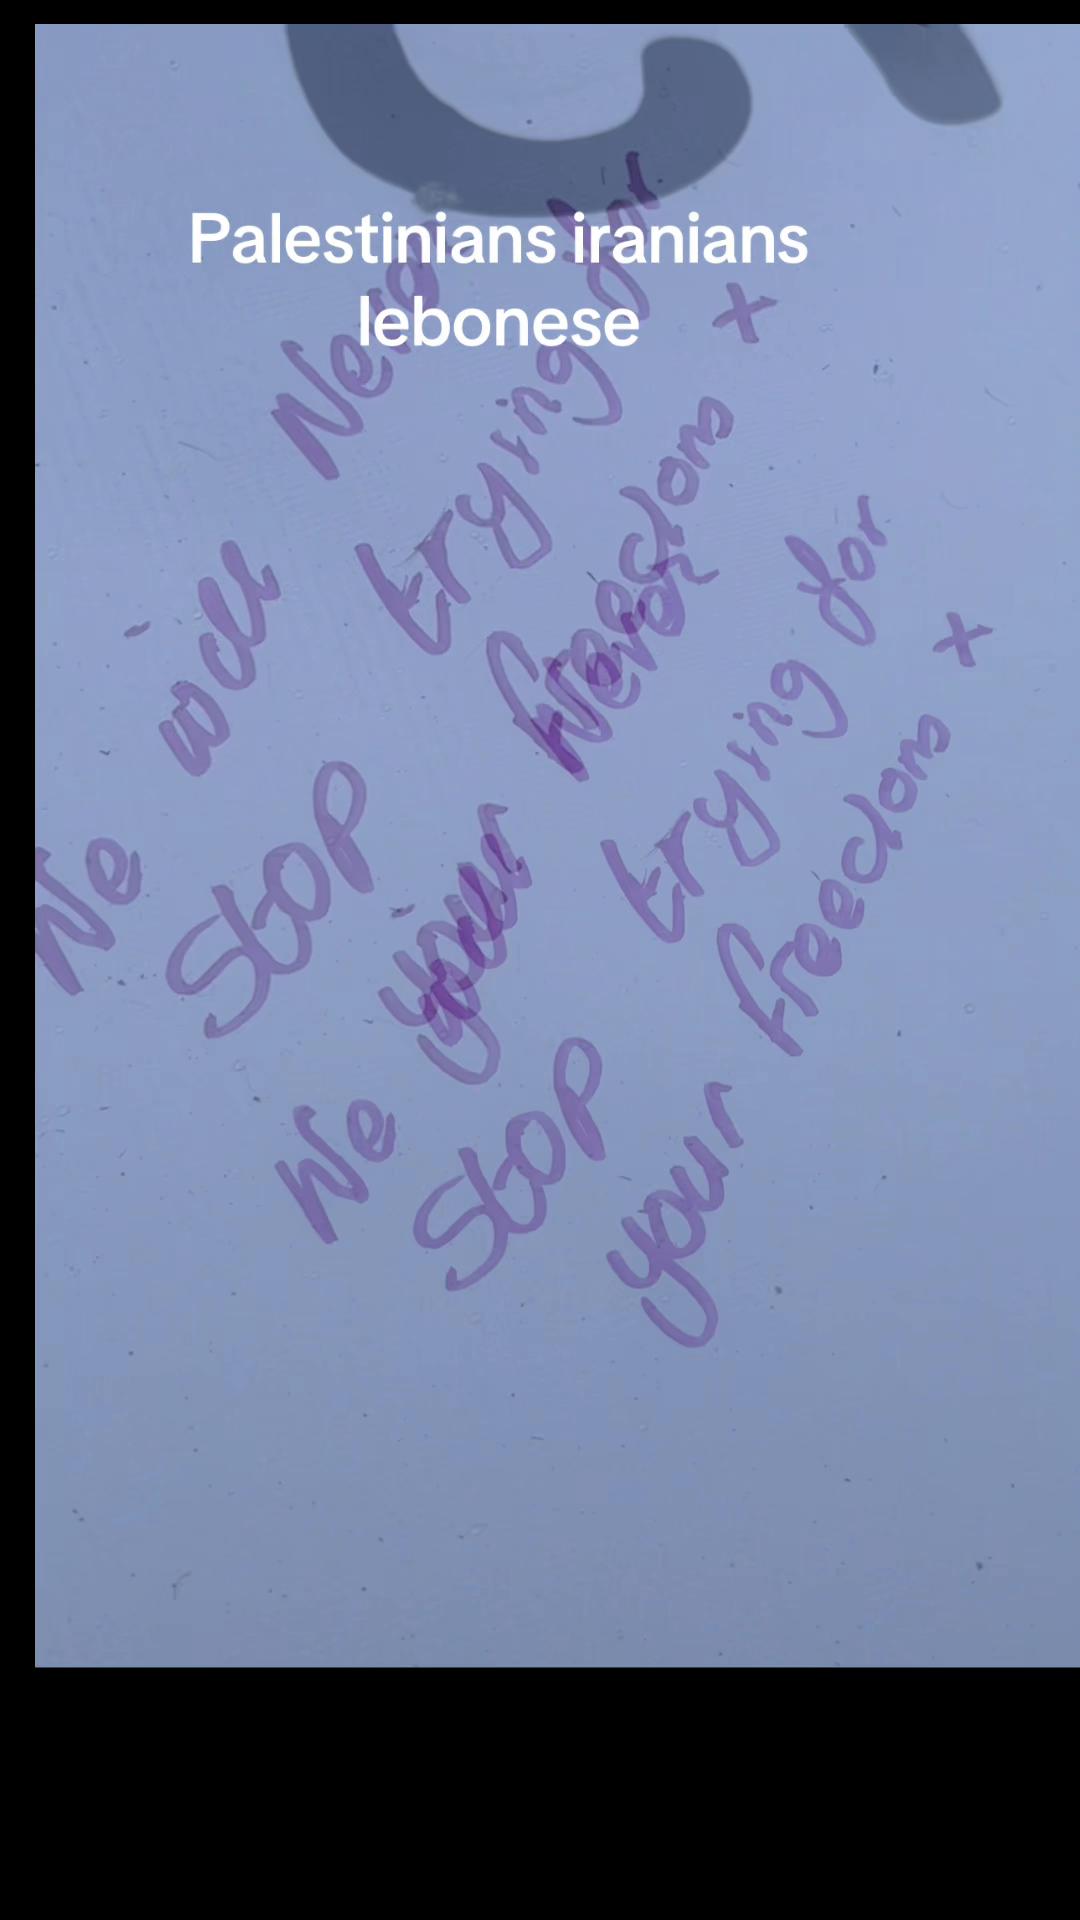 Palestinians iranians
lebonese
We will Never
Stop trying for
your freedom x
We will Never
Stop trying for
your freedom x